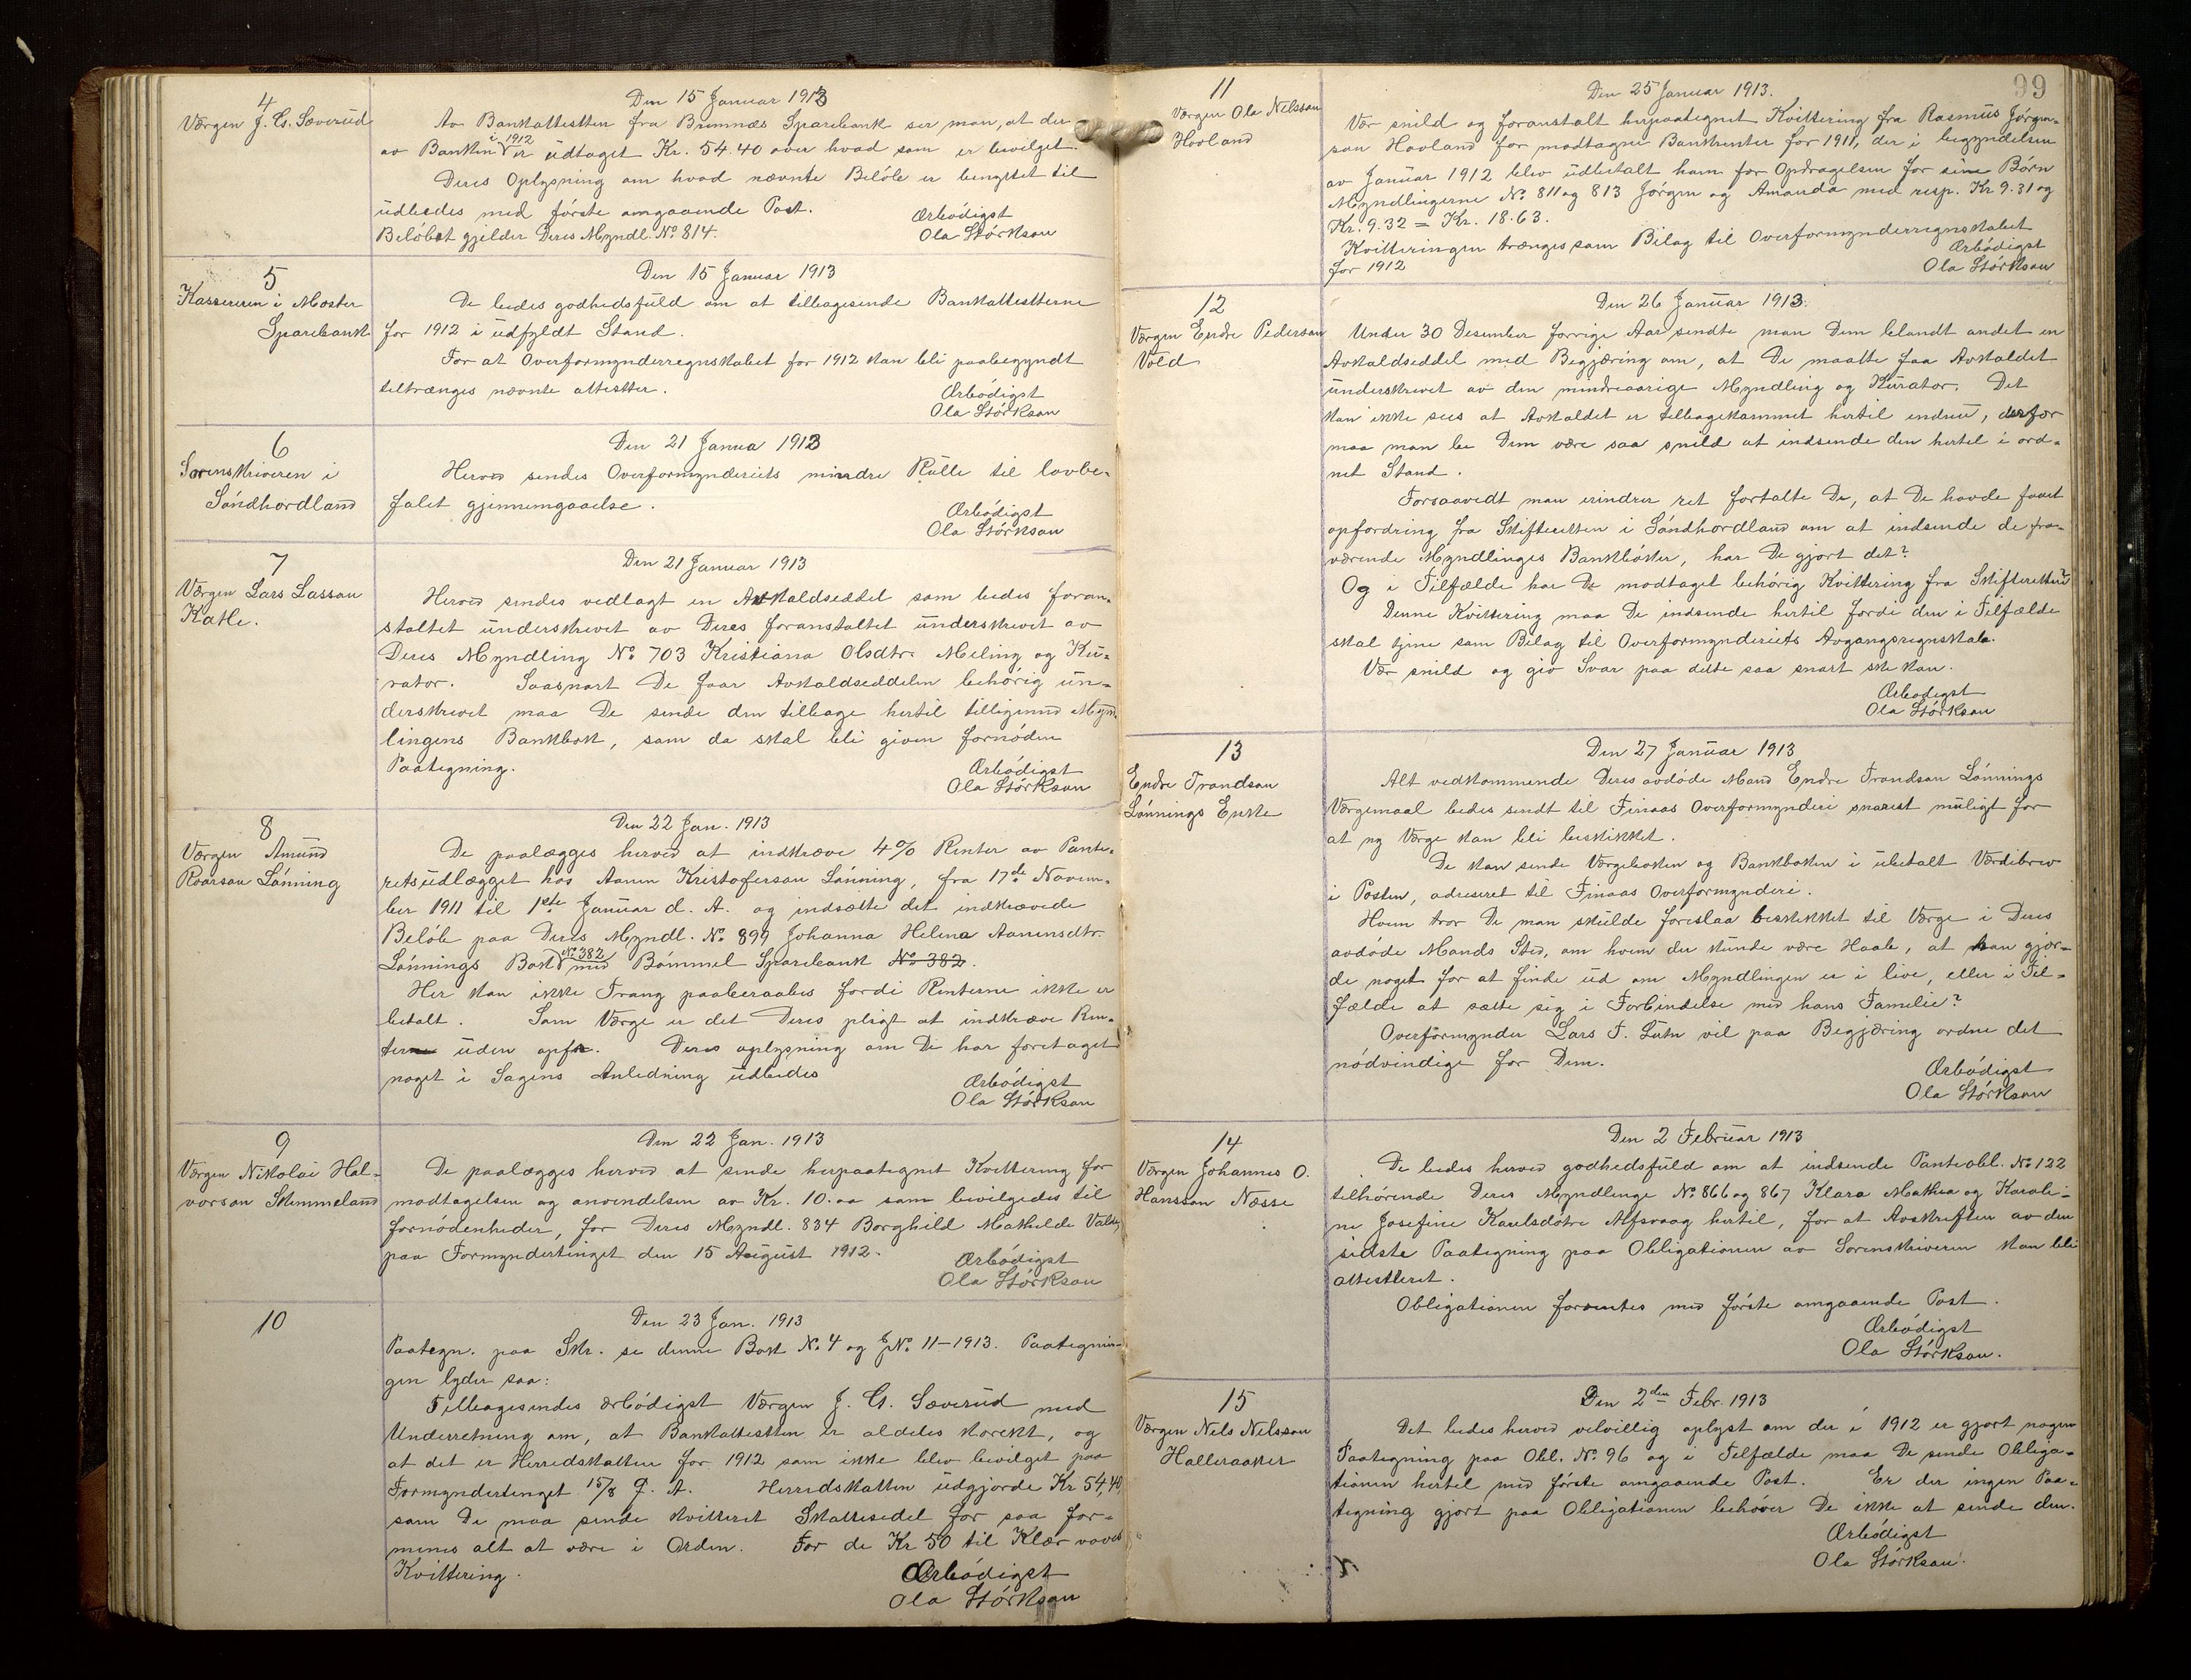 4
Værgen J. G. Sæverud
Den 15 Januar 1913
Av Bankattestten fra Brimnæs Sparebank ser man, at der
i 1912
av Banken er udtaget Kr. 54.40 over hvad som er bevilget.
Deres Oplysning om hvad nævnte Beløb er benyttet til
udbedes med første omgaaende Post.
Beløbet gjelder Deres Myndl. No 814.
Ærbödigst
Ola Störkson
5
Kassereren i Moster
Sparebank
Den 15 Januar 1913
De bedes godhedsfuld om at tilbagesende Bankattestterne
for 1912 i udfyldt Stand.
For at Overformynderregnskabet for 1912 kan bli paabegyndt
tiltrænges nævnte attestter.
Ærbödigst
Ola Störkson
6
Sorenskriveren i
Söndhordland
Den 21 Janua 1913
Herved sendes Overformynderiets mindre Rulle til lovbe-
falet gjennemgaaelse.
Ærbödigst
Ola Störkson
7
Værgen Lars Larsson
Katle.
Den 21 Januar 1913
Herved sendes vedlagt en Avkaldseddel som bedes foran-
staltet underskrevet av Deres foranstaltet underskrevet av
Deres Myndling No 703 Kristiana Olsdtr. Meling og Ku-
rator. Saasnart De faar Avkaldseddelen behörig un-
derskrevet maa De sende den tilbage hertil tilligemed Mynd-
lingens Bankbok, som da skal bli given fornöden
Paategning.
Ærbödigst
Ola Störkson
8
Værgen Amund
Roarson Lönning
Den 22 Jan. 1913
De paalægges herved at indkræve 4% Renter av Pante-
retsudlægget hos Aamen Kristoferson Lönning, fra 17de Novem-
ber 1911 til 1ste Januar d. A. og indsætte det indkrævede
Belöb paa Deres Myndl. No 899 Johanna Helena Aamensdtr.
No 382
Lönnings Bok med Bömmel Sparebank No 382.
Her kan ikke Trang paaberaabes fordi Renterne ikke er
betalt. Som Værge er det Deres pligt at indkræve Ren-
terne uden opfr. Deres oplysning om De har foretaget
noget i Sagens Anledning udbedes
Ærbödigst
Ola Störkson
9
Værgen Nikolai Hal-
vorson Skimmeland
Den 22 Jan. 1913
De paalægges herved at sende herpaategnet Kvittering for
modtagelsen og anvendelsen av Kr. 10.00 som bevilgedes til
fornödenheder, for Deres Myndl. 834 Borghild Mathilde
paa Formyndertinget den 15 August 1912.
Ærbödigst
Ola Störkson
10
Den 23 Jan. 1913
Paategn. paa Skr. se denne Bok No 4 og JNo 11-1913. Paategnin-
gen lyder saa:
Tilbagesendes ærbödigst Værgen J. G. Sæverud med
Underretning om, at Bankattestten er aldeles korekt, og
at det er Herredskatten for 1912 som ikke blev bevilget paa
Formyndertinget 15/8 f. A. Herredskatten udgjorde Kr 54,40,
som De maa sende kvitteret Skattesedel for saa for-
menes alt at være i Orden. For de Kr 50 til Klær
Kvittering.
Ærbödigst
Ola Störkson
99
11
Værgen Ola Nelsson
Hovland
Den 25 Januar 1913.
Vær snild og foranstalt herpaategnet Kvittering fra Rasmus Jörgen-
son Hovland for modtagne Bankrenter for 1911, der i begyndelsen
av Januar 1912 blev udbetalt ham for Opdragelsen for sine Börn
Myndlingerne No 811 og 813 Jörgen og Amanda med resp. Kr 9.31 og
Kr. 9.32 = Kr. 18.63.
Kvitteringen trænges som Bilag til Overformynderregnskabet
for 1912
Ærbödigst
Ola Störkson
12
Værgen Endre Pederson
Vold
Den 26 Januar 1913.
Under 30 Desember forrige Aar sendte man Dem blandt andet en
Avkaldseddel med Begjæring om, at De maatte faa Avkaldet
underskrevet av den mindreaarige Myndling og Kurator. Det
kan ikke sees at Avkaldet er tilbagekommet hertil endnu, derfor
maa man be Dem være saa snild at indsende den hertil i ord-
net Stand.
Forsaavedt man erindrer ret fortalte De, at De havde faaet
opfordring fra Skifteretten i Söndhordland om at indsende de fra-
værende Myndlinges Bankböker, har De gjort det?
Og i Tilfælde har De modtaget behörig Kvittering fra Skifteretten?
Denne Kvittering maa De indsende hertil fordi den i Tilfælde
skal tjene som Bilag til Overformynderiets Avgangsregnskab.
Vær snild og giv Svar paa dette saa snart ske kan.
Ærbödigst
Ola Störkson
13
Endre Trondson
Lönnings Enke
Den 27 Januar 1913
Alt vedkommende Deres avdöde Mand Endre Trondson Lönnings
Værgemaal bedes sendt til Finaas Overformynderi snarest muligt for
at ny Værge kan bli beskikket.
De kan sende Værgeboken og Bankboken i ubetalt Værdibrev
i Posten, adreseret til Finaas Overformynderi.
Hvem tror De man skulde foreslaa beskikket til Værge i Deres
avdöde Mands Sted, om hvem der kunde være Haab, at han gjor-
de noget for at finde ud om Myndlingen er i live, eller i Til-
fælde at sætte sig i Forbindelse med hans Familie?
Overformynder Lars T. Lutn vil paa Begjæring ordne det
nödvindige for Dem.
Ærbödigst
Ola Störkson
14
Værgen Johannes O.
Hansson Næsse
Den 2 Februar 1913
De bedes herved godhedsfuld om at indsende Panteobl. No 122
tilhörende Deres Myndlinge No 866 og 867 Klara Mathea og Karoli-
ne Josefine Karlsdötre Alfsvaag hertil, for at Avskriften av den
sidste Paategning paa Obligationen av Sorenskriveren kan bli
attestteret.
Obligationen forventes med förste omgaaende Post.
Ærbödigst
Ola Störkson.
15
Værgen Nels Nelsson
Halleraaker
Den 2den Febr. 1913
Det bedes herved velvillig oplyst om der i 1912 er gjort nogen
Paategning paa Obl. No 96 og i Tilfælde maa De sende Obliga-
tionen hertil med förste omgaaende Post. Er der ingen Paa-
tegning gjort paa Obligationen behöver De ikke at sende den.
Ærbödigst
Ola Störkson.